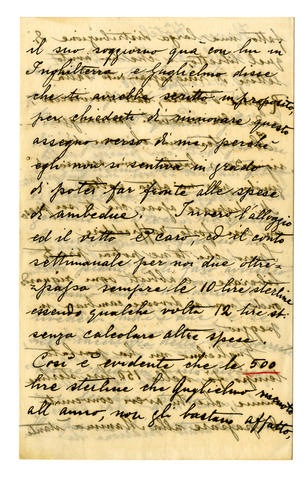 il suo soggiorno qua con lui in
Inghilterra e Guglielmo disse
che ti avrebbe scritto in proposito,
per chiederti di rinnovare questo
assegno verso di me, perchè
egli non si sentiva in grado
di poter far fronte alle spese
di ambedue. Invero l'alloggio
ed il vitto è caro, ed il conto
settimanale per noi due oltre-
-passa sempre le 10 lire sterline
essendo qualche volta 12 lire st:
senza calcolare altre spese.
Così è evidente che le 500
lire sterline che Guglielmo
all'anno, non gli bastano affatto,